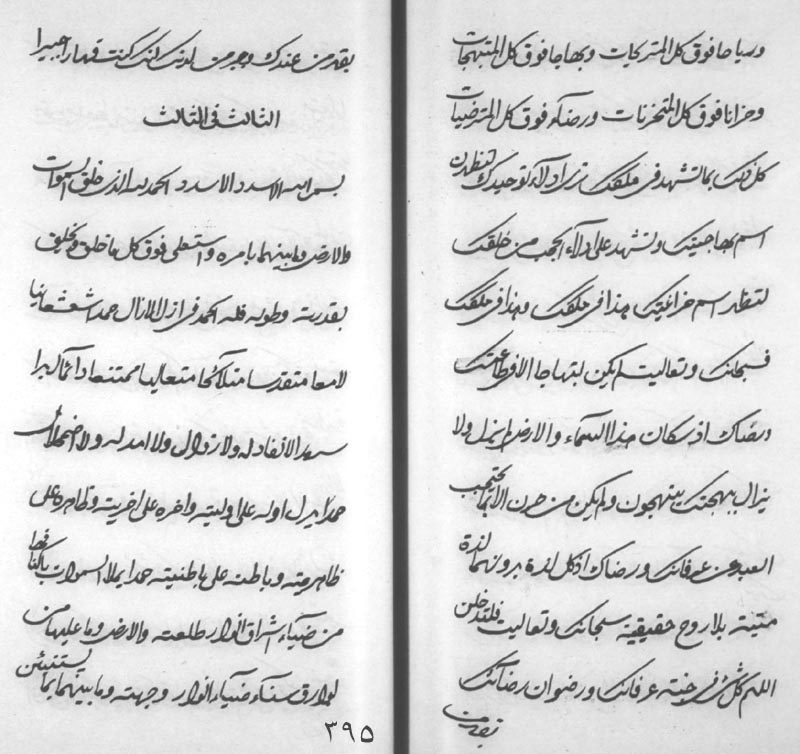 ورياحا فوق كل المتريحات وبهاجا فوق كل المتبهجات
وحزانا فوق كل المتحزنات ورضاء فوق كل المترضيات
كل ذلك بما تشهد في ملكك ترى ادلاء توحيدك لتظهرن
اسم بهاجيتك وتشهد على ادلاء الحجب من خلقك
لتظهر اسم حزاعيتك هذا في ملكك وهذا في ملكك
فسبحانك وتعاليت لم يكن ابتهاجا الا في طاعتك
ورضاك اذ سكان هذا السماء والارض لم يزل ولا
يزال ببهجتك يبتهجون ولم يكن من حزن الا بما يحتجب
العبد عن عرفانك ورضاك اذ كل لذة بدونهما لذة
ميتة بلا روح حقيقية سبحانك وتعاليت فلتدخلن
اللهم كل شئ في جنة عرفانك ورضوان رضائك
بقدرة
بقدرة من عندك وجود من لدنك انك كنت قهارا جبيرا
الثالث في الثالث
بسم الله الاسدد الاسدد الحمد لله الذي خلق السموات
والارض وما بينهما بامره واستعلى فوق كل ما خلق ويخلق
بقدرته وطوله فله الحمد في ازل الازال حمدا شعشعانيا
لامعا متقدسا متلألأ متعاليا ممتنعا دائما ابدا
سرمدا لا نفاد له ولا زوال ولا امد له ولا اضمحلال
حمدا يدل اوله على اوليته واخره على اخريته وظاهره على
ظاهريته وباطنه على باطنيته حمدا يملأ السموات باكنافها
من ضياء اشراق انوار طلعته والارض وما عليها من
لوارق سناء ضياء انوار وجهته وما بينهما بما يستنبئن
٣٩٥